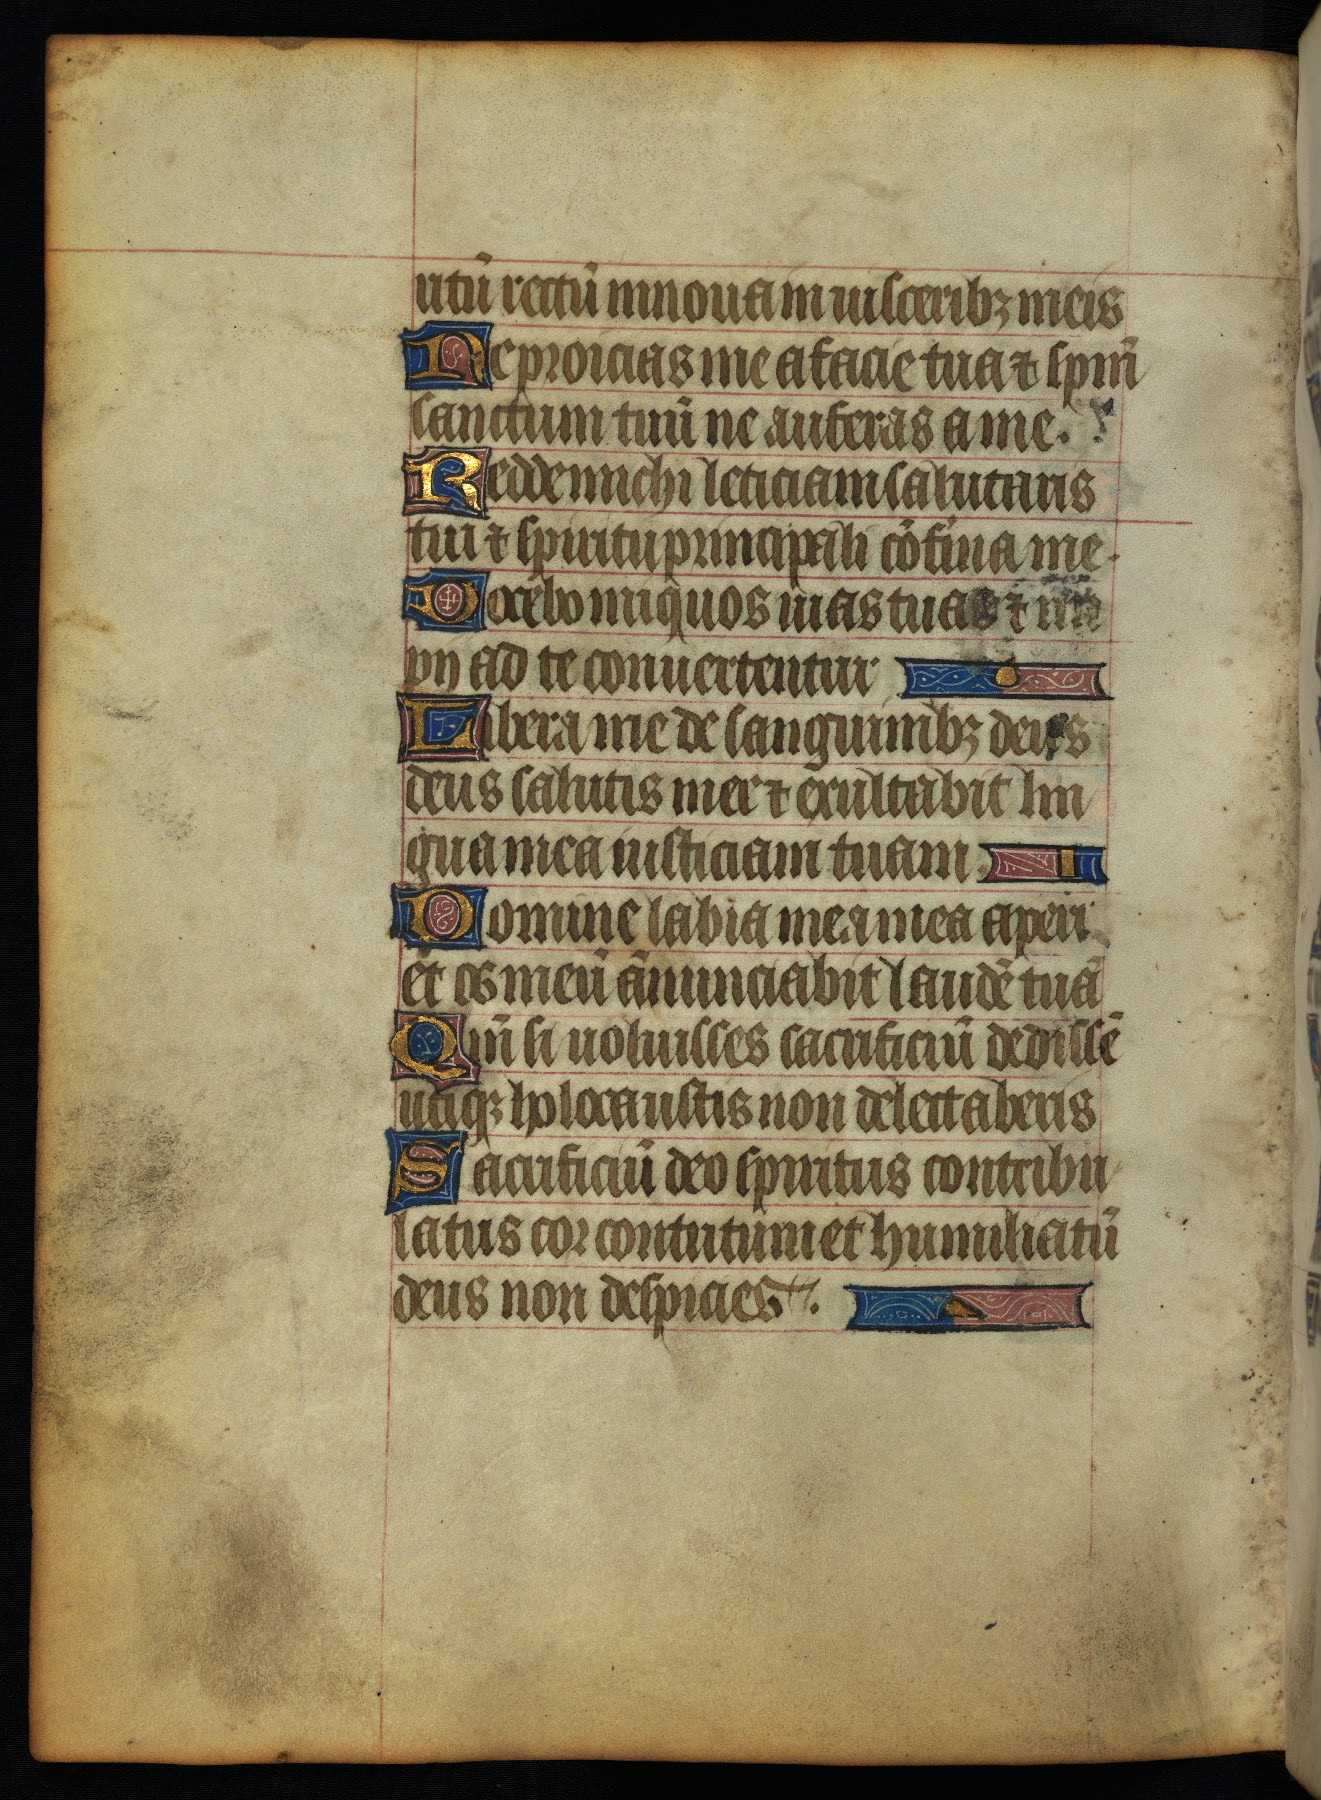 ritū rectū innova in visceribꝫ meis
Ne proicias me a facie tua ⁊ spm̄
sanctum tuū ne auferas a me.
Redde michi leticiam salutaris
tui ⁊ spiritu principali cōfirma me.
Docebo iniquos vias tuas ⁊ im
pij ad te convertentur
Libera me de sanguinibꝫ deus
deus salutis mee ⁊ exultabit lin
gua mea iusticiam tuam.
Domine labia mea mea aperi
et os meū ānunciabit laudē tuā
Qm̄ si voluisses sacrificiū dedissē
utiqꝫ holocaustis non delectaberis
Sacrificiū deo spiritus contribu
latus cor contritum et humiliatū
deus non despicies.